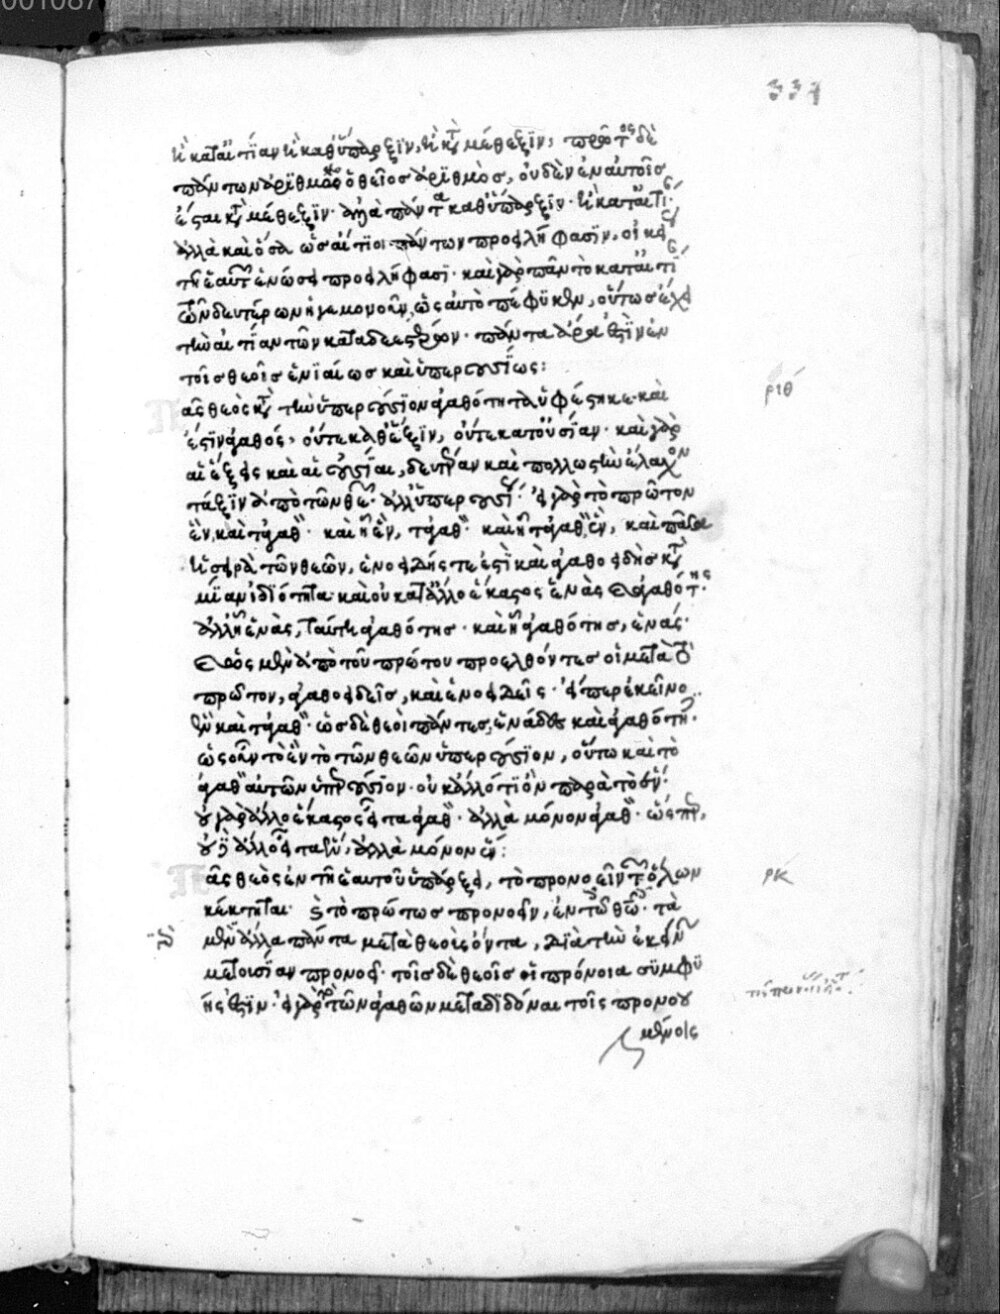 001087
331
ἢ κατ' αἰτίαν ἢ καθ' ὕπαρξιν, ἢ κατὰ μέθεξιν, πρῶτος δὲ
πάντων ἀριθμὸς ὁ θεῖος ἀριθμὸς, οὐδὲν ἐν αὐτοῖς
ἔσται κατὰ μέθεξιν· ἀλλὰ πάντα καθ' ὕπαρξιν· ἢ κατ' αἰτί
ἀλλὰ καὶ ὅσα ὡς αἴτιοι πάντων προσειλήφασιν, οἰκείως
τῇ ἑαυτῶν ἑνώσει προσειλήφασι· καὶ γὰρ πᾶν τὸ κατ' αἰτί
τῶν δευτέρων ἡγεμονοῦν, ὡς αὐτὸ πέφυκεν, οὕτως ἔχει
τὴν αἰτίαν τῶν καταδεεστέρων· πάντα ἄρα ἐστὶν ἐν
τοῖς θεοῖς ἑνιαίως καὶ ὑπερουσίως:
ριθ
ᾶς θεὸς κατὰ τὴν ὑπερούσιον ἀγαθότητα ὑφέστηκε· καὶ
ἔστιν ἀγαθός, οὔτε καθ' ἕξιν, οὔτε κατ' οὐσίαν· καὶ γὰρ
αἱ ἕξεις καὶ αἱ οὐσίαι, δευτέραν καὶ πολλοστὴν ἔλαχον
τάξιν ἀπὸ τῶν θεῶν· ἀλλ' ὑπερουσίως· εἰ γὰρ τὸ πρῶτον
ἓν, καὶ τἀγαθόν· καὶ ᾗ ἓν, τἀγαθόν· καὶ ᾗ τἀγαθὸν, ἓν, καὶ πᾶσα
ἡ σειρὰ τῶν θεῶν, ἑνοειδής τε ἐστὶ καὶ ἀγαθοειδὴς κατὰ
μίαν ἰδιότητα· καὶ οὐ κατ' ἄλλο ἑκάστος ἑνὰς καὶ ἀγαθότης·
ἀλλ' ᾗ ἑνὰς, ταύτῃ ἀγαθότης· καὶ ᾗ ἀγαθότης, ἑνάς·
καὶ ὡς μὲν ἀπὸ τοῦ πρώτου προελθόντες οἱ μετὰ τὸ
πρῶτον, ἀγαθοειδεῖς, καὶ ἑνοειδεῖς· εἴπερ ἐκεῖνο
ἓν καὶ τἀγαθόν· ὡς δὲ θεοὶ πάντες, ἑνάδες καὶ ἀγαθότητες·
ὡς οὖν τὸ ἓν τὸ τῶν θεῶν ὑπερούσιον, οὕτω καὶ τὸ
ἀγαθὸν αὐτῶν ὑπερούσιον· οὐκ ἄλλό τι ὂν παρὰ τὸ ἕν·
οὐ γὰρ ἄλλο ἕκαστος εἶτα ἀγαθόν· ἀλλὰ μόνον ἀγαθόν· ὥσπερ,
οὐδὲ ἄλλο εἶτα ἕν, ἀλλὰ μόνον ἕν:
ρκ
ᾶς θεὸς ἐν τῇ ἑαυτοῦ ὑπάρξει, τὸ προνοεῖν τῶν ὅλων
κέκτηται· καὶ τὸ πρώτως προνοεῖν, ἐν τοῖς θεοῖς· τὰ
μὲν ἄλλα πάντα μετὰ θεοὺς ὄντα, διὰ τὴν ἐκείνων
μετουσίαν προνοεῖ· τοῖς δὲ θεοῖς ἡ πρόνοια συμφυ
ής ἐστιν· εἰ γὰρ τὸ τῶν ἀγαθῶν μεταδιδόναι τοῖς προνου
μένοις